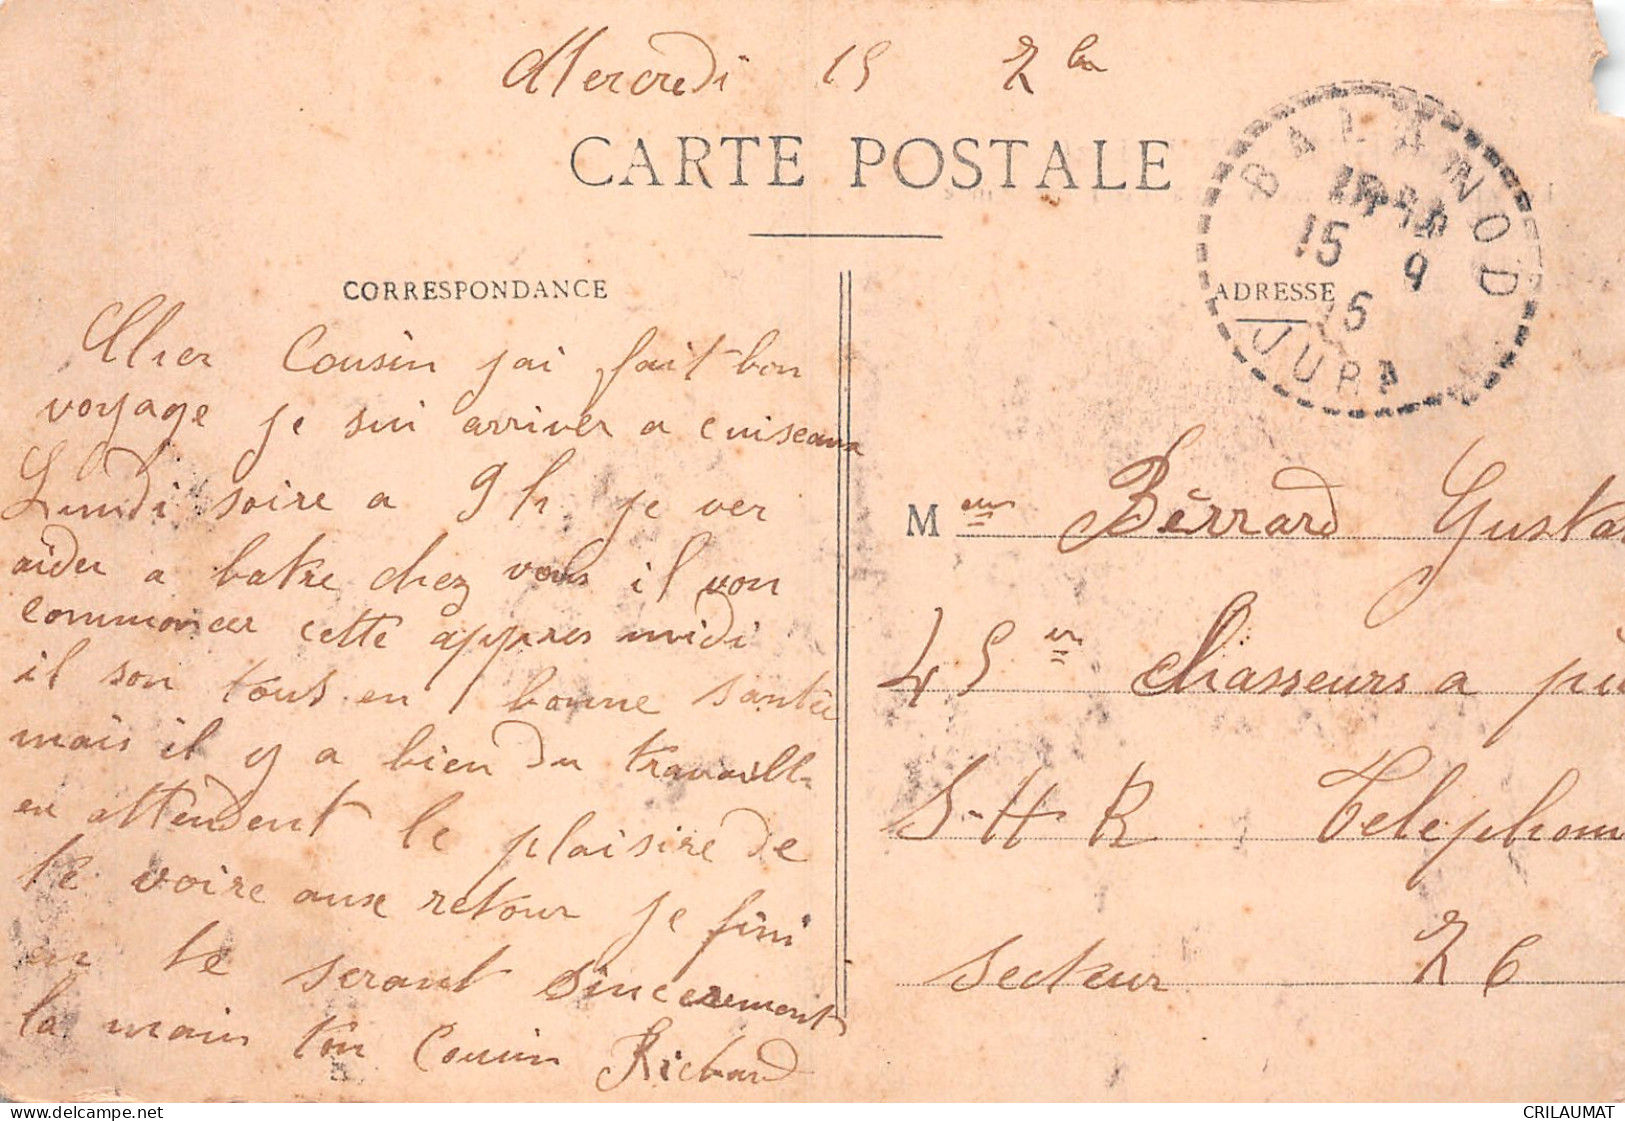 Mercredi 15 7bre
CARTE POSTALE
BALANOD
15 9
15
JURA
CORRESPONDANCE
ADRESSE
Cher Cousin jai fait bon
voyage je sui arriver a cuiseaux
Lundi soire a 9 h je ver
aider a batre chez vous il von
commoncer cette appres midi
il son tous en bonne santée
mais il y a bien du travaille
en attendent le plaisire de
te voire aux retour je fini
en te serant sincerement
la main ton Cousin Richard
M eur Bérrard Gusta
45 em Chasseurs a pie
S-H R Telephon
secteur 76
CRILAUMAT